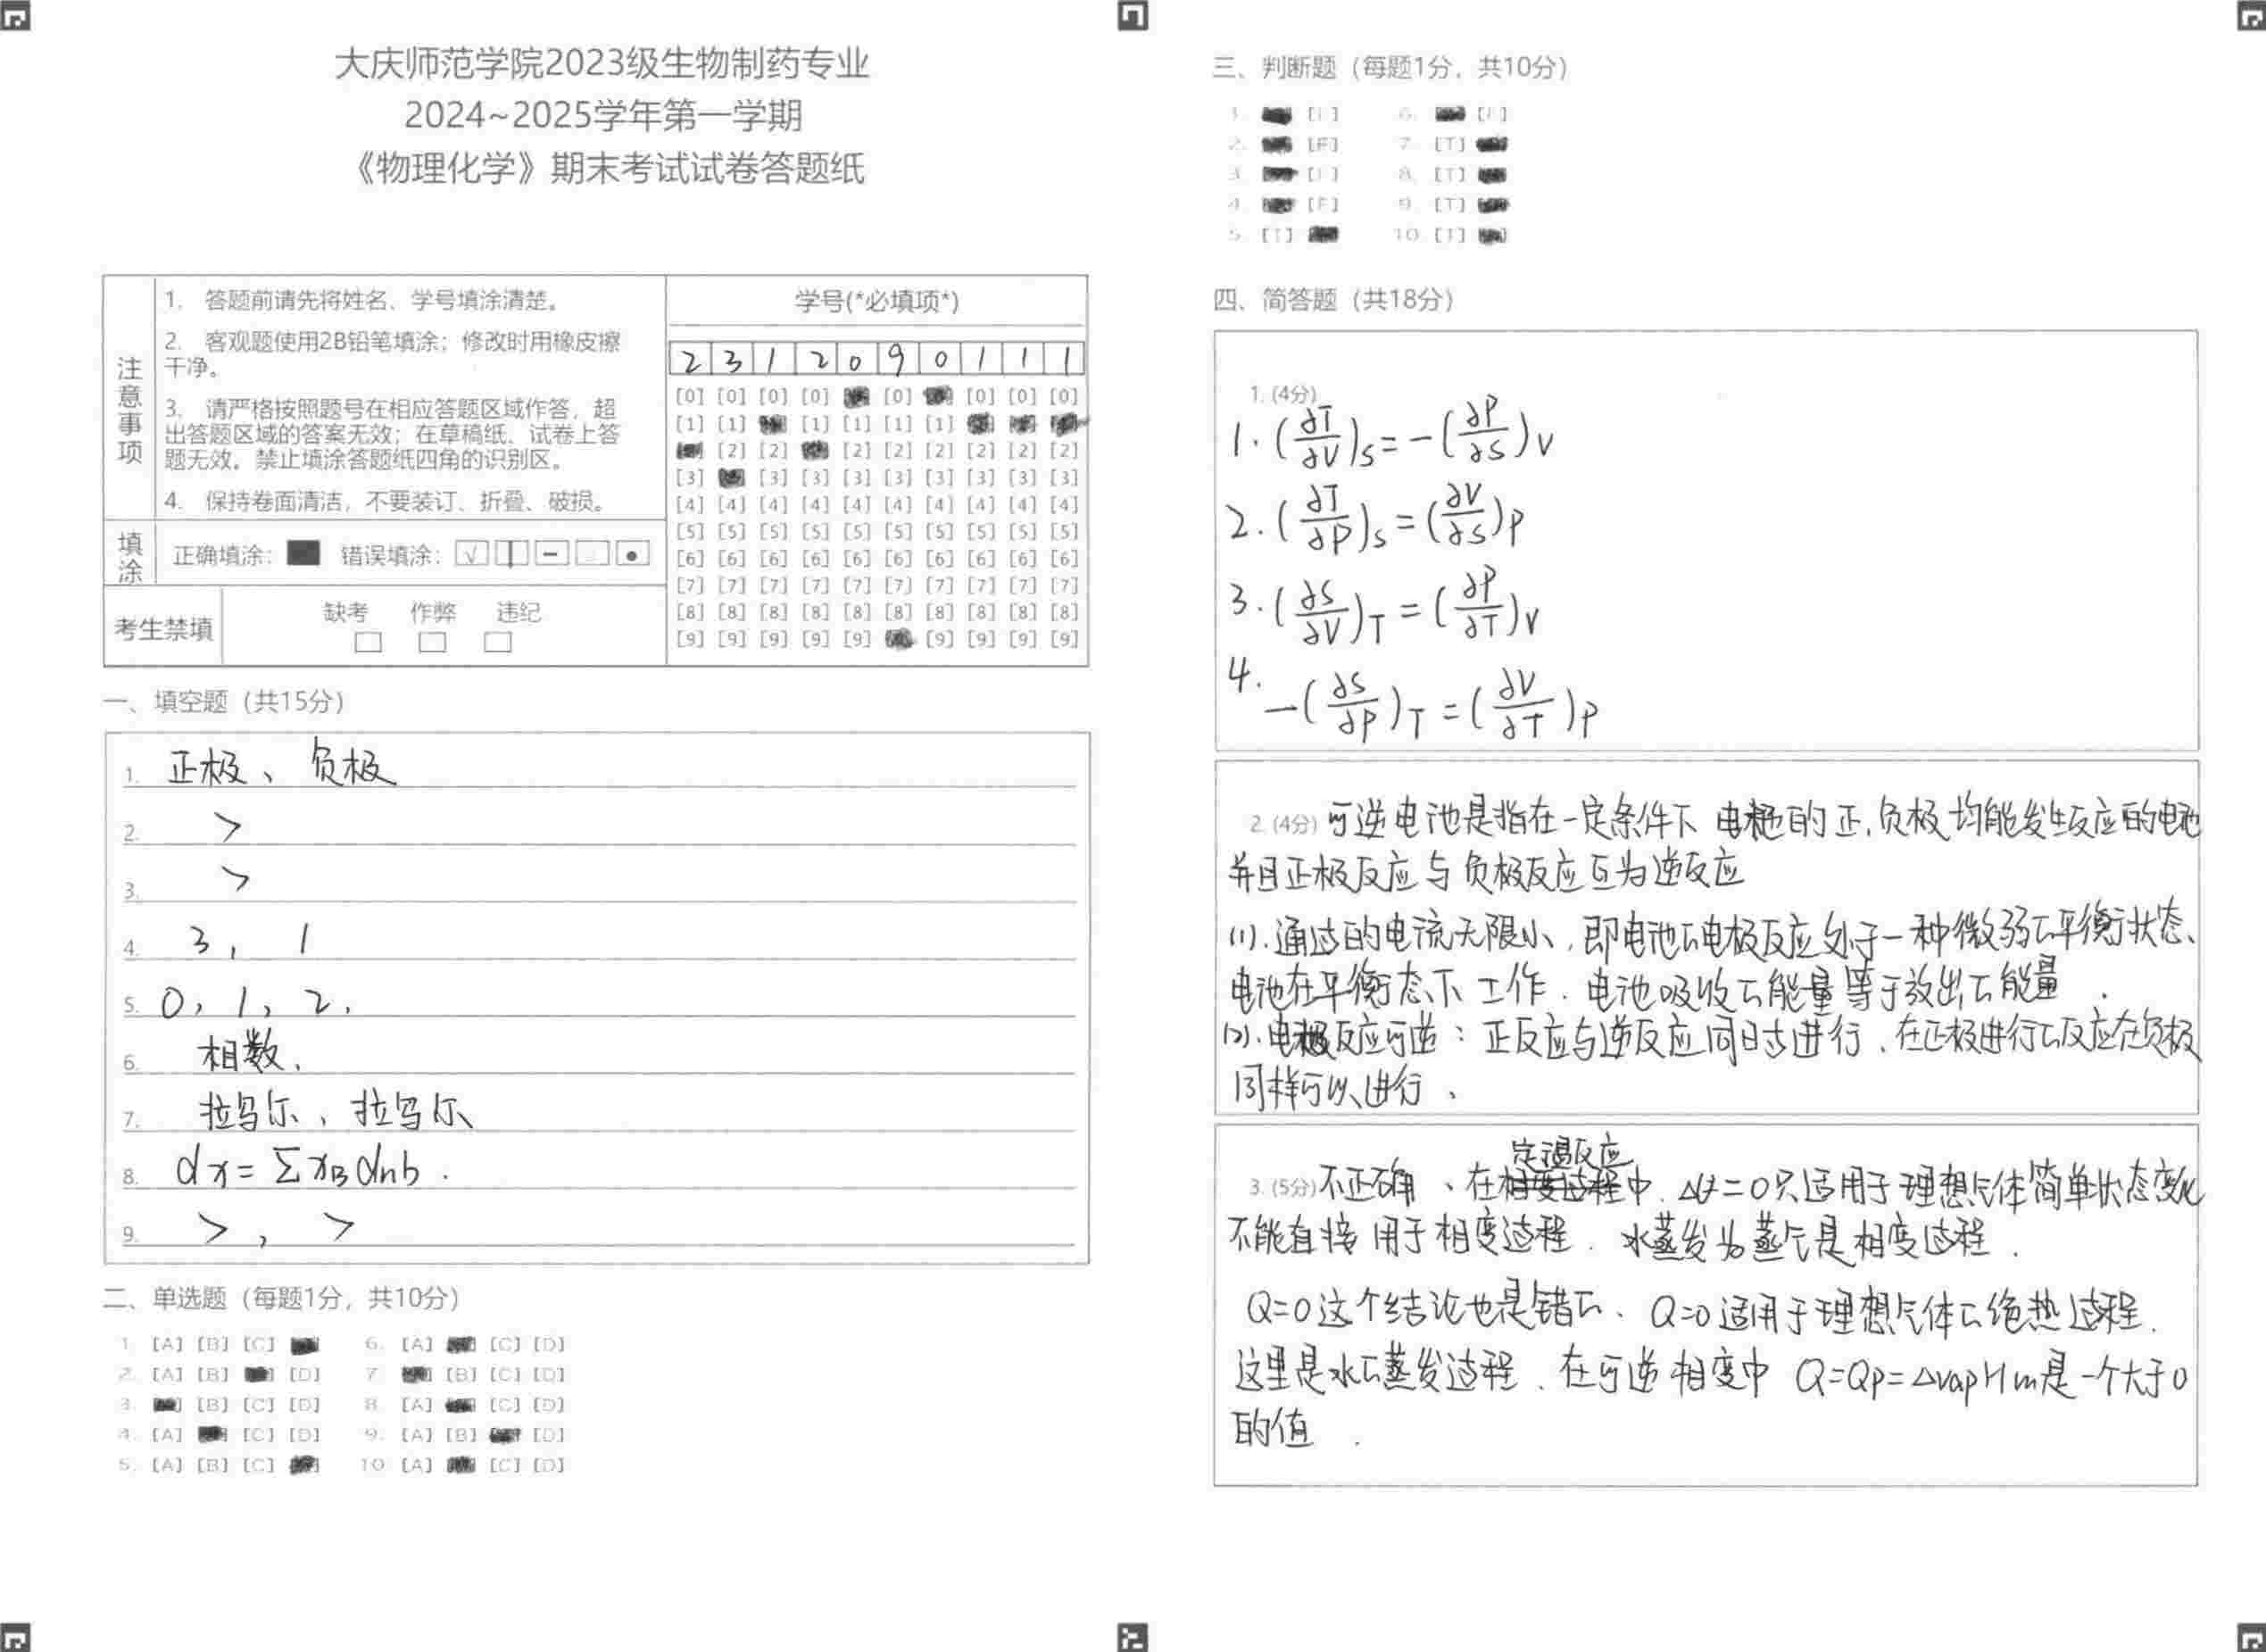 大庆师范学院2023级生物制药专业
2024~2025学年第一学期
《物理化学》期末考试试卷答题纸
注意事项
1. 答题前请先将姓名、学号填涂清楚。
2. 客观题使用2B铅笔填涂；修改时用橡皮擦
干净。
3. 请严格按照题号在相应答题区域作答，超
出答题区域的答案无效；在草稿纸、试卷上答
题无效。禁止填涂答题纸四角的识别区。
4. 保持卷面清洁，不要装订、折叠、破损。
填涂
正确填涂： 错误填涂：
考生禁填
缺考 作弊 违纪
学号(*必填项*)
2 3 1 2 0 9 0 1 1 1
[0] [0] [0] [0] [0] [0] [0] [0]
[1] [1] [1] [1] [1] [1]
[2] [2] [2] [2] [2] [2] [2] [2]
[3] [3] [3] [3] [3] [3] [3] [3] [3]
[4] [4] [4] [4] [4] [4] [4] [4] [4] [4]
[5] [5] [5] [5] [5] [5] [5] [5] [5] [5]
[6] [6] [6] [6] [6] [6] [6] [6] [6] [6]
[7] [7] [7] [7] [7] [7] [7] [7] [7] [7]
[8] [8] [8] [8] [8] [8] [8] [8] [8] [8]
[9] [9] [9] [9] [9] [9] [9] [9] [9]
一、填空题（共15分）
1. 正极、负极
2. >
3. >
4. 3, 1
5. 0, 1, 2.
6. 相数.
7. 拉乌尔、拉乌尔
8. dx=ΣxBdnb.
9. >, >
二、单选题（每题1分，共10分）
1. [A] [B] [C] 6. [A] [C] [D]
2. [A] [B] [D] 7. [B] [C] [D]
3. [B] [C] [D] 8. [A] [C] [D]
4. [A] [C] [D] 9. [A] [B] [D]
5. [A] [B] [C] 10. [A] [C] [D]
三、判断题（每题1分，共10分）
1. [F] 6. [F]
2. [F] 7. [T]
3. [F] 8. [T]
4. [F] 9. [T]
5. [T] 10. [T]
四、简答题（共18分）
1. (4分)
1. (∂T/∂V)S=-(∂P/∂S)V
2. (∂T/∂P)S=(∂V/∂S)P
3. (∂S/∂V)T=(∂P/∂T)V
4. -(∂S/∂P)T=(∂V/∂T)P
2. (4分) 可逆电池是指在一定条件下 电极的正,负极均能发生反应的电池
并且正极反应与负极反应互为逆反应
(1). 通过的电流无限小，即电池的电极反应处于一种微弱的平衡状态、
电池在平衡态下工作. 电池吸收的能量等于放出的能量.
(2). 电极反应可逆：正反应与逆反应同时进行、在正极进行的反应在负极
同样可以进行、
定温反应
3. (5分) 不正确、在相变过程中. ΔU=0只适用于理想气体简单状态变化
不能直接用于相变过程. 水蒸发为蒸气是相变过程.
Q=0这个结论也是错的、Q=0适用于理想气体的绝热过程.
这里是水的蒸发过程、在可逆相变中 Q=Qp=ΔvapHm是一个大于0
的值.